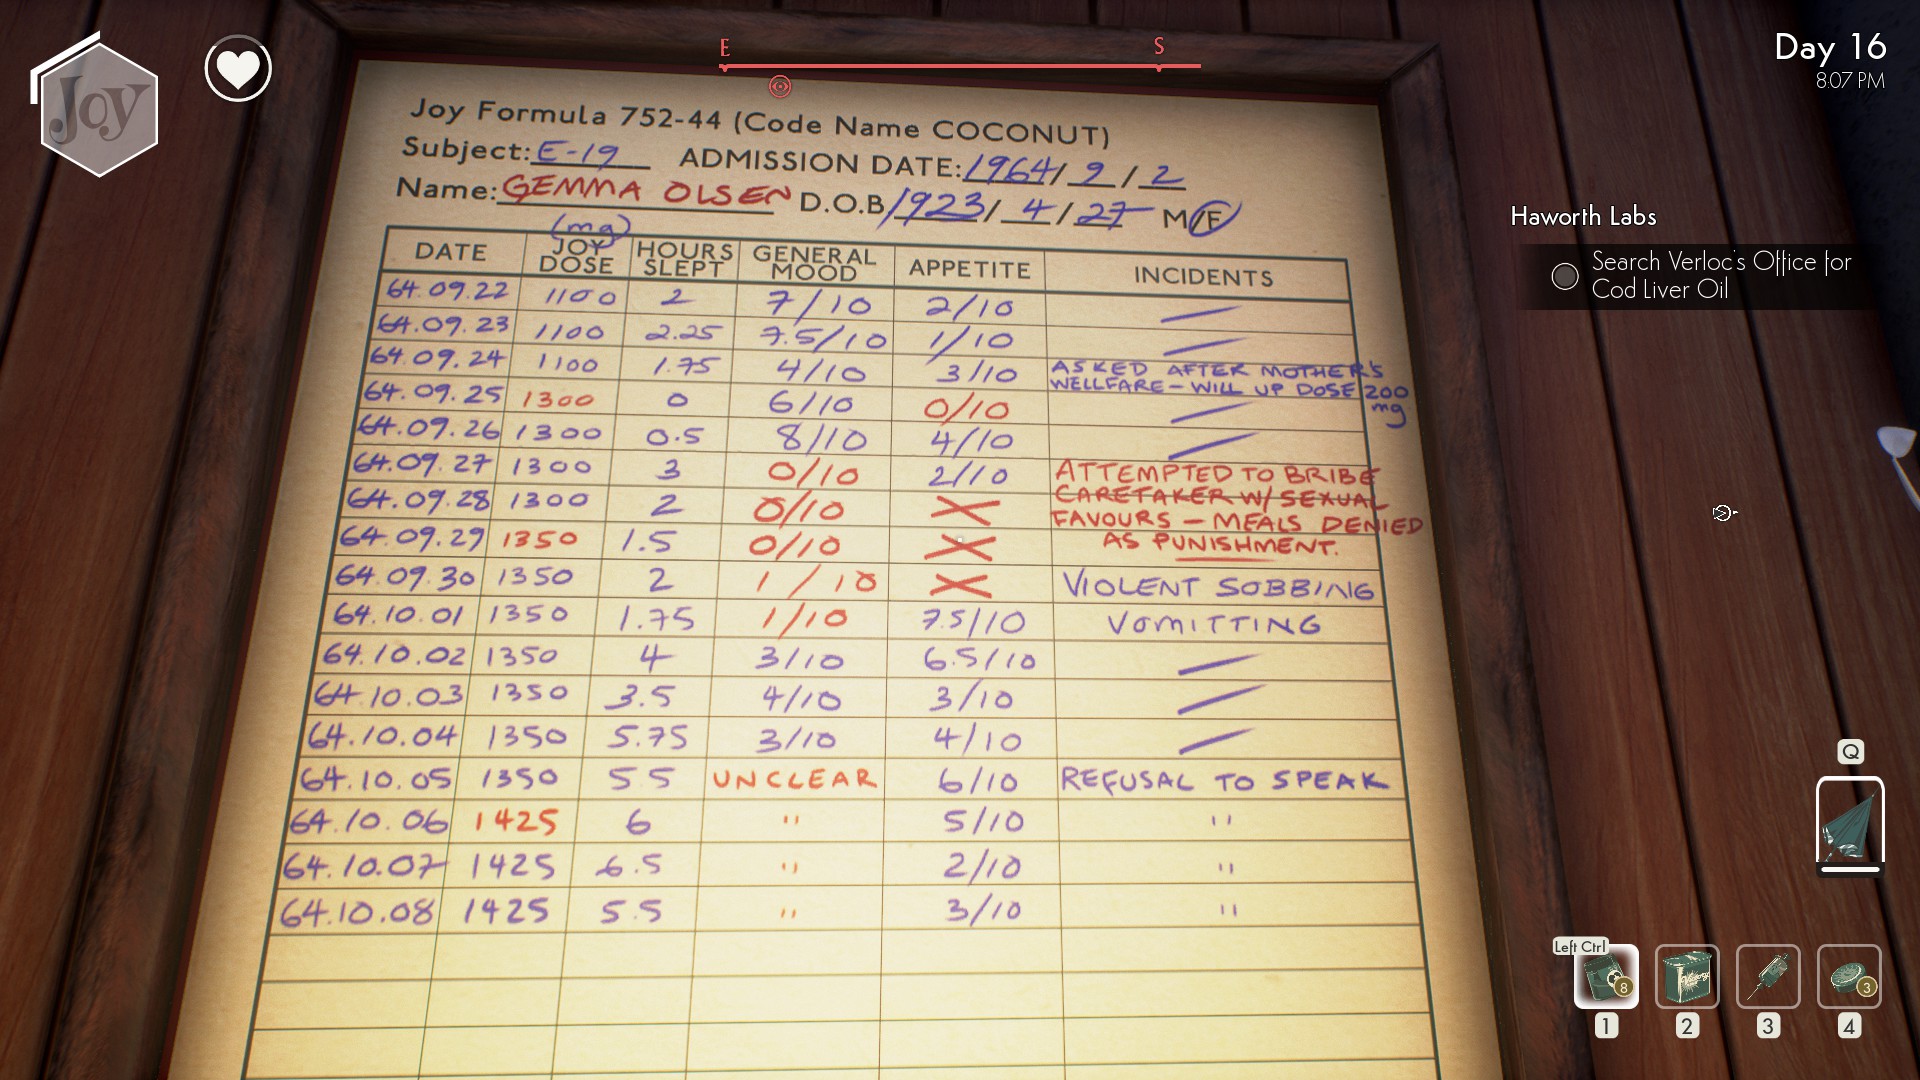 Joy
E S
Day 16
8:07 PM
Haworth Labs
Search Verloc's Office for
Cod Liver Oil
Joy Formula 752-44 (Code Name COCONUT)
Subject: E-19 ADMISSION DATE: 1964/9/2
Name: GEMMA OLSEN D.O.B 1923/4/27 M/F
(mg)
DATE JOY DOSE HOURS SLEPT GENERAL MOOD APPETITE INCIDENTS
64.09.22 1100 2 7/10 2/10 —
64.09.23 1100 2.25 7.5/10 1/10 —
64.09.24 1100 1.75 4/10 3/10 ASKED AFTER MOTHER'S
WELLFARE - WILL UP DOSE 200
mg
64.09.25 1300 0 6/10 0/10 —
64.09.26 1300 0.5 8/10 4/10 —
64.09.27 1300 3 0/10 2/10 ATTEMPTED TO BRIBE
CARETAKER W/ SEXUAL
64.09.28 1300 2 0/10 X FAVOURS - MEALS DENIED
64.09.29 1350 1.5 0/10 X AS PUNISHMENT.
64.09.30 1350 2 1/10 X VIOLENT SOBBING
64.10.01 1350 1.75 1/10 7.5/10 VOMITTING
64.10.02 1350 4 3/10 6.5/10 —
64.10.03 1350 3.5 4/10 3/10 —
64.10.04 1350 5.75 3/10 4/10 —
64.10.05 1350 5.5 UNCLEAR 6/10 REFUSAL TO SPEAK
64.10.06 1425 6 " 5/10 "
64.10.07 1425 6.5 " 2/10 "
64.10.08 1425 5.5 " 3/10 "
Q
Left Ctrl
8
Victory
3
1 2 3 4